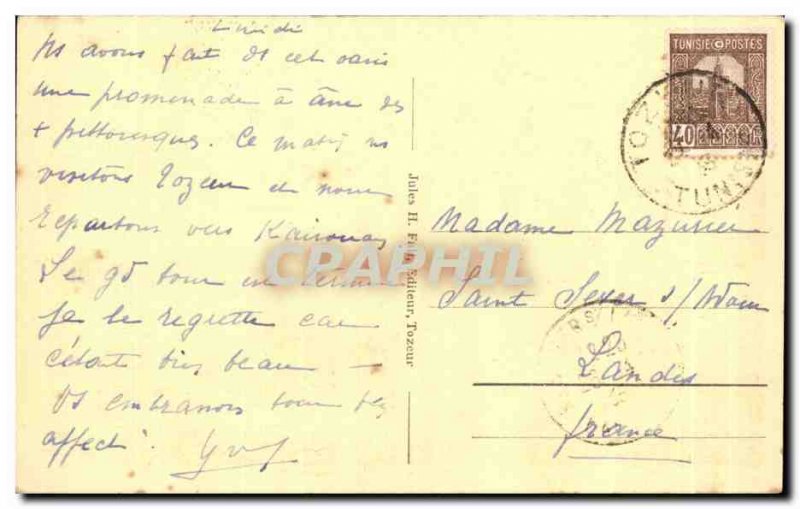 Lundi
Ns avons fait
une promenade à âne des
+ pittoresques. Ce matin ns
visitons Tozeur et nous
repartons vers Kairouan
Le gd tour est terminé
je le regrette car
c'était bien beau —
Vs embrassons tous
affect
Jules H. Editeur, Tozeur
TUNISIE POSTES
40
TOZ
TUNIS
Madame Mazurier
Saint Sever s/ Adour
Landes
france
CPAPHIL